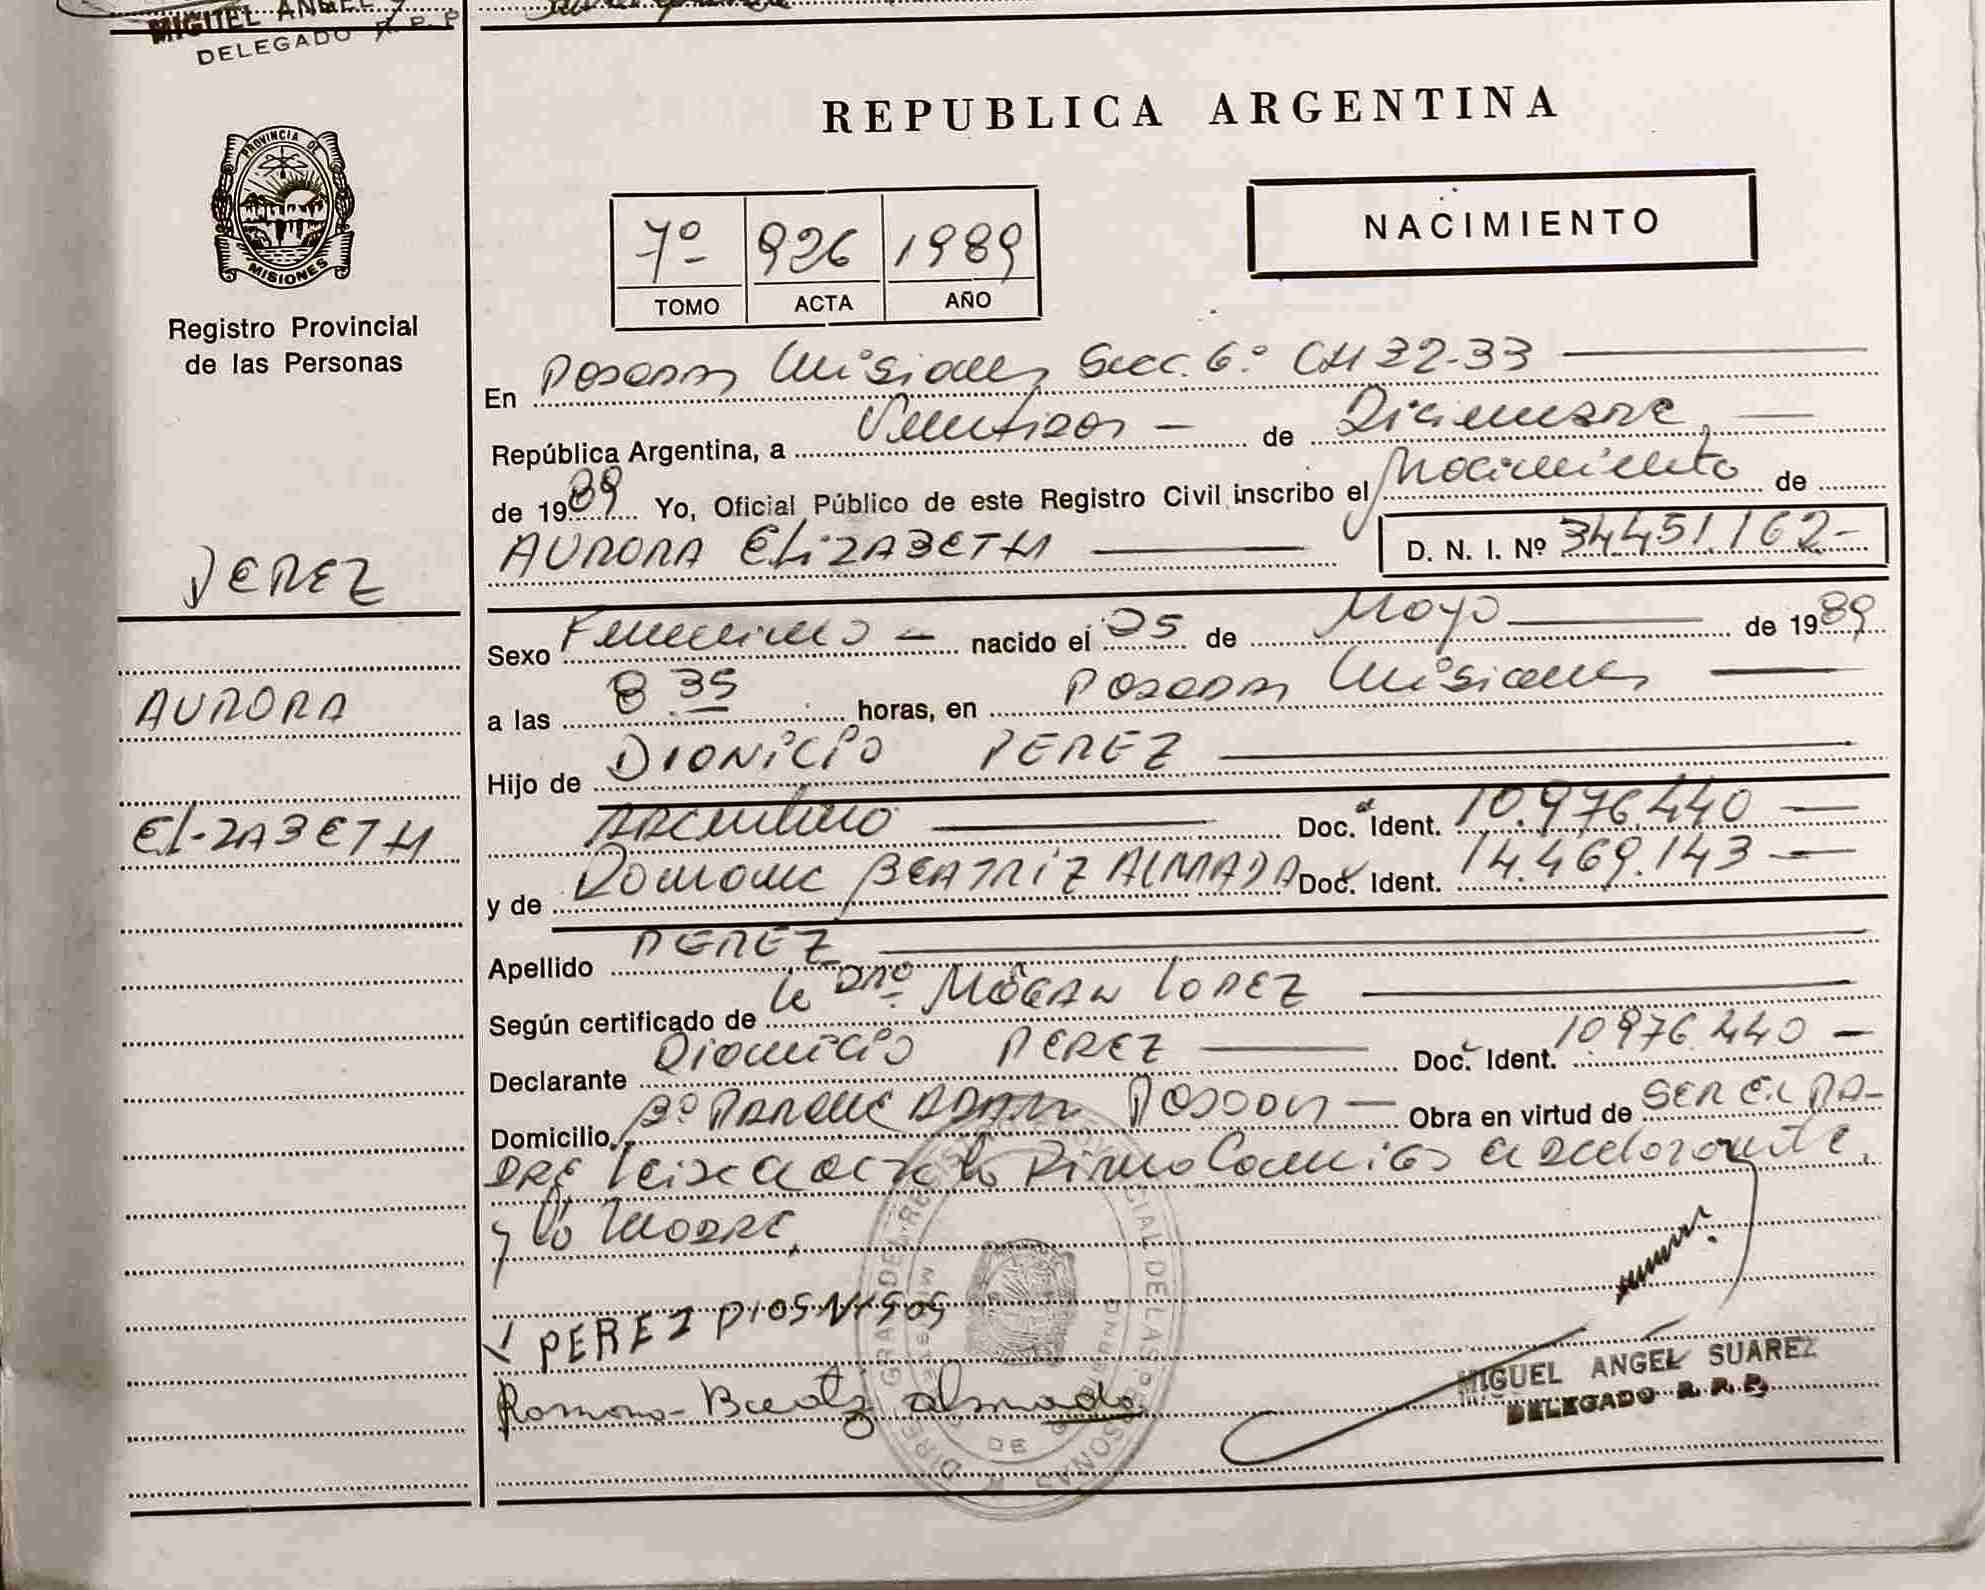 MIGUEL ANGEL
DELEGADO R. P. P.
PROVINCIA DE
MISIONES
Registro Provincial
de las Personas
PEREZ
AURORA
ELIZABETH
REPUBLICA ARGENTINA
7º 926 1989
TOMO ACTA AÑO
NACIMIENTO
En Posadas Misiones Secc. 6º CH 32-33
República Argentina, a Veintidos - de Diciembre,
de 1989 Yo, Oficial Público de este Registro Civil inscribo el Nacimiento de
AURORA ELIZABETH D. N. I. Nº 34451.162-
Sexo Femenino - nacido el 25 de Mayo de 1989
a las 8 35 horas, en Posadas Misiones
Hijo de DIONICIO PEREZ
ARGENTINO Doc. Ident. 10.976.440
y de Romona BEATRIZ ALMADA Doc. Ident. 14.469.143
Apellido PEREZ
Según certificado de la DRA. LOPEZ
Declarante Dionicio PEREZ Doc. Ident. 10976.440
Domicilio Bº PARQUE ADAM Posadas Obra en virtud de SER EL PA-
DRE Leida el acta la Firma Conmigo el declarante
y la MADRE.
PEREZ DIOSNISOS
Romona Beatriz Almada
MIGUEL ANGEL SUAREZ
DELEGADO R. P. P.